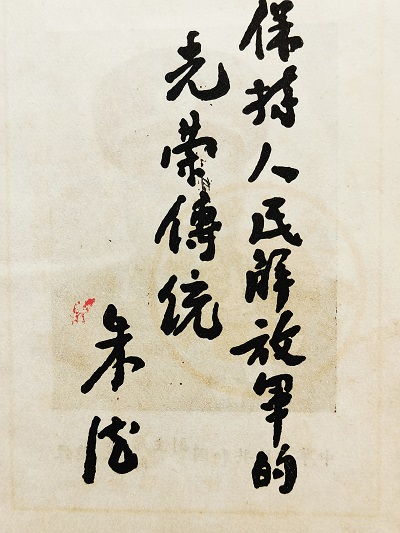 保持人民解放军的
光荣傳統
朱德